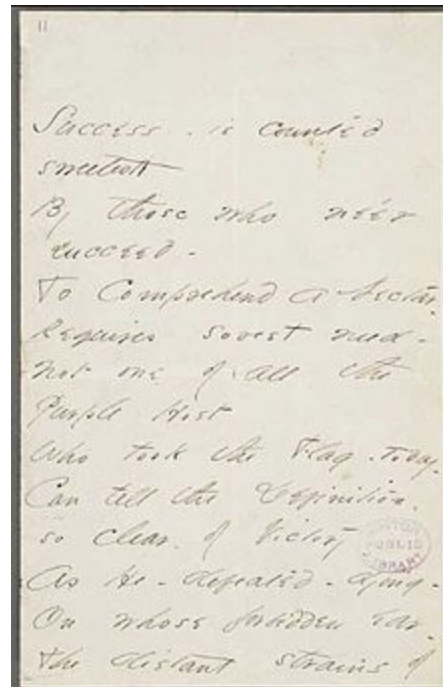 11
Success - is counted
sweetest
By those who ne'er
succeed -
To Comprehend a Nectar
Requires sorest need -
Not one of all the
Purple Host
Who took the Flag - Today -
Can tell the Definition -
so clear - of Victory
As He - defeated - dying -
On whose forbidden ear -
The distant strains of
PUBLIC
LIBRARY